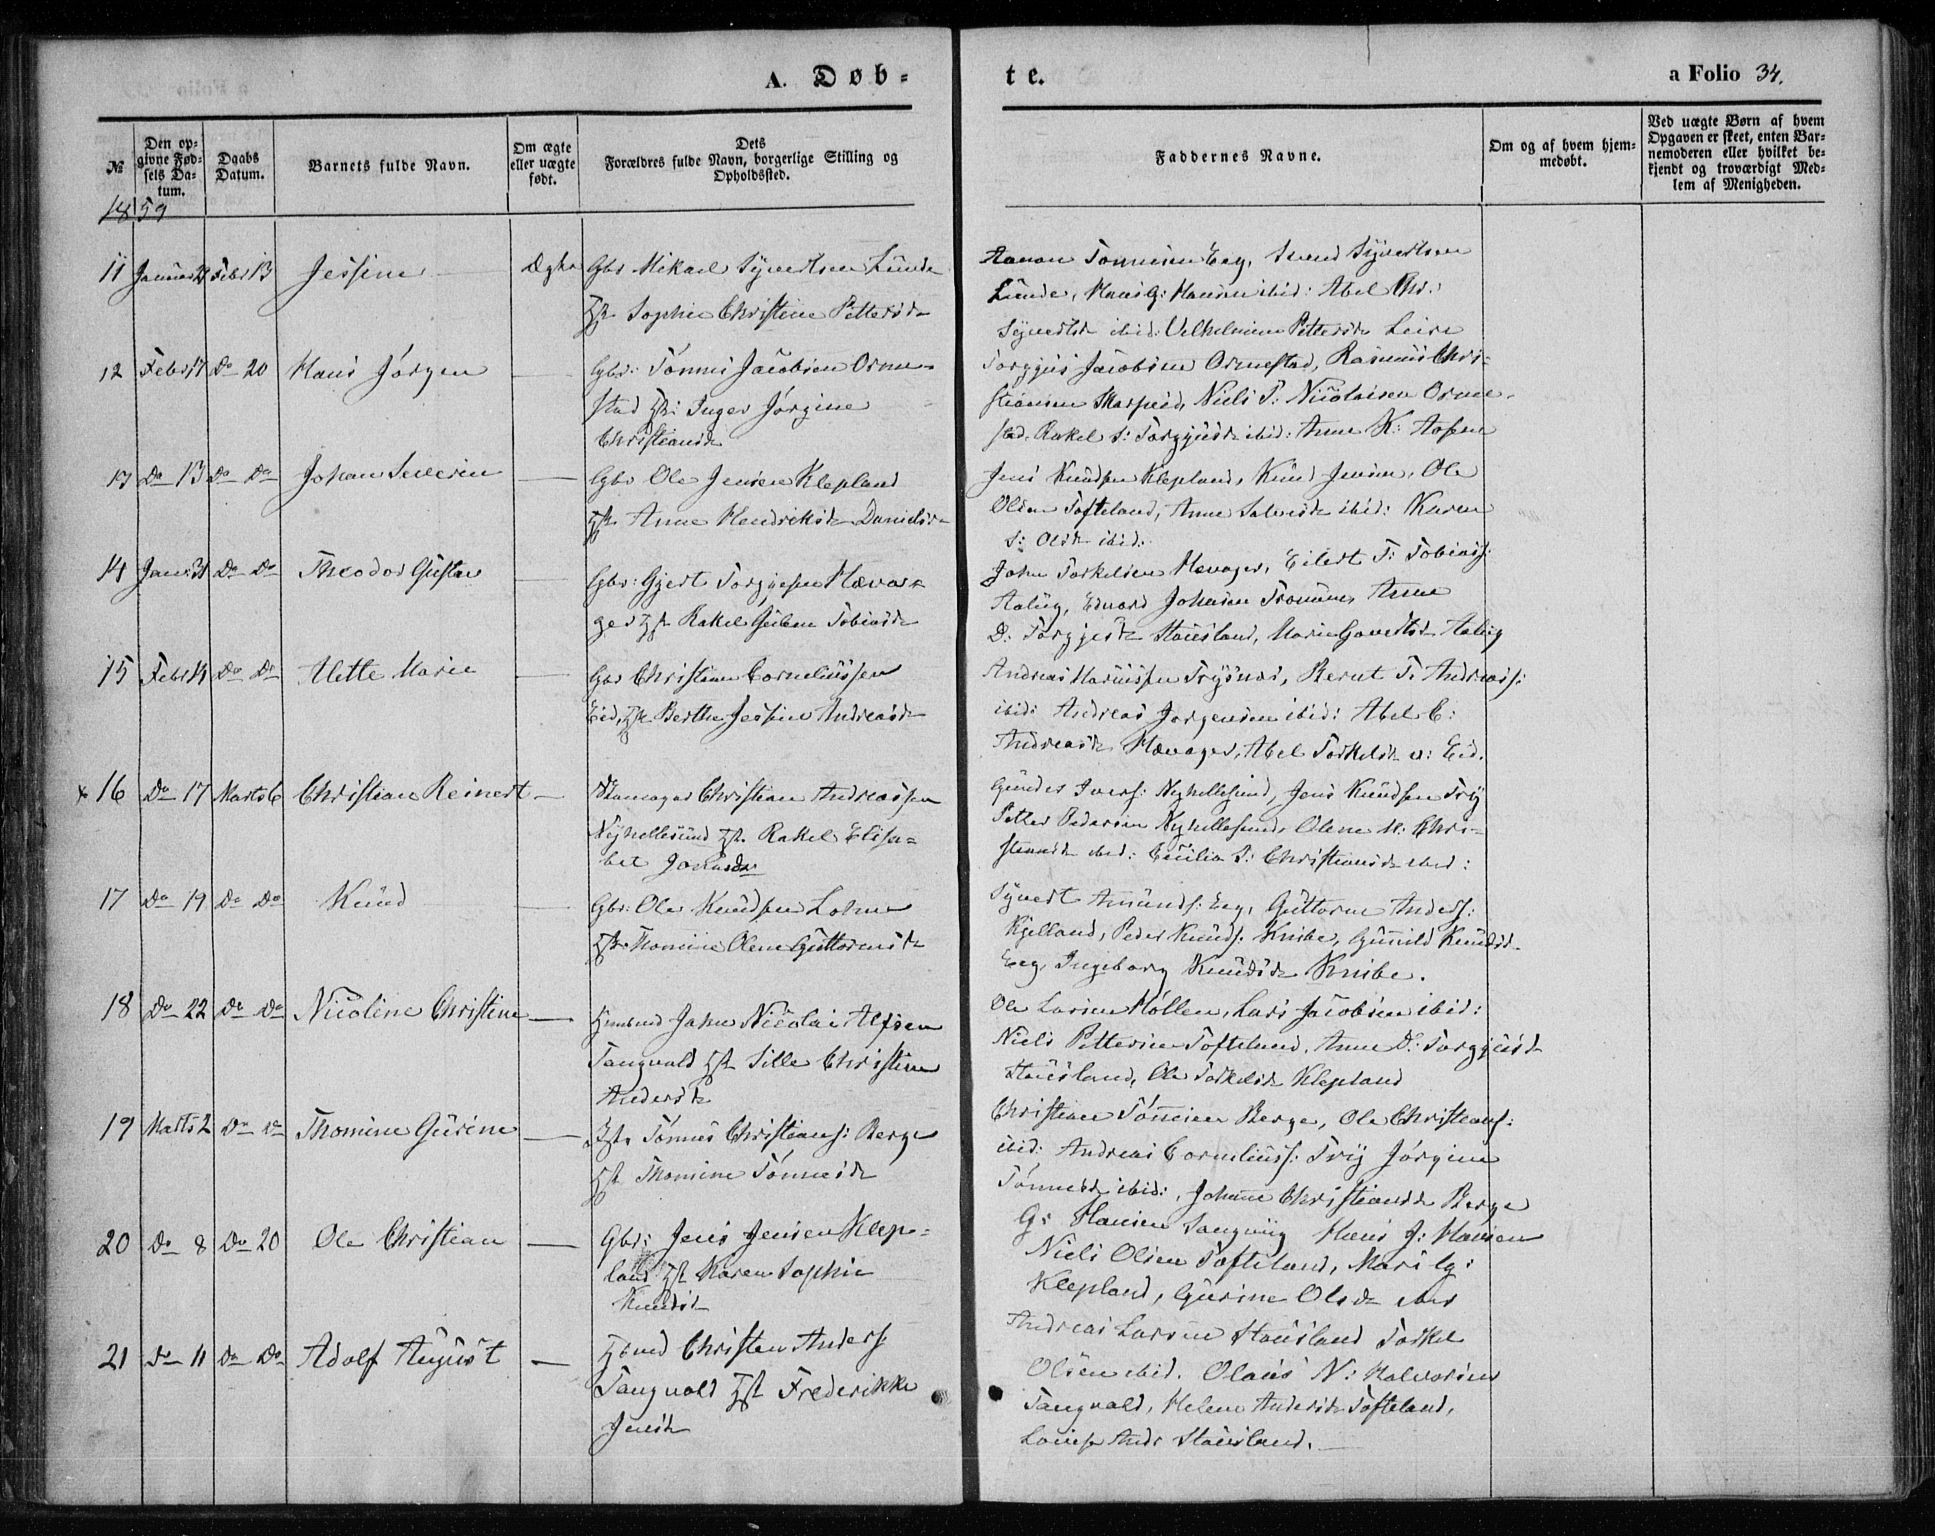 A. Døb-
te.
a Folio 34.
№
Den opgivne Fødsels Datum.
Daabs Datum.
Barnets fulde Navn.
Om ægte eller uægte født.
Dets Forældres fulde Navn, borgerlige Stilling og Opholdssted.
Faddernes Navne.
Om og af hvem hjemmedøbt.
Ved uægte Børn af hvem Opgaven er skeet, enten Barnemoderen eller hvilket bekjendt og troværdigt Medlem af Menigheden.
1859
11 Januar Febr 13 Jessine Ægte Gbr Mikael Syvertsen Lunde
Hst Sophie Christine Pettersdr
Aanon Tønnesen Eeg, Svend Syvertsen
Lunde, Hans G: Hansen ibid: Abel Chr:
Syvertsd ibid: Vilhelmine Pettersdr Leire
12 Febr 17 Do 20 Hans Jørgen Gbr: Tønnes Jacobsen Orme-
stad Hst: Inger Jørgine
Christiansdr
Torgjus Jacobsen Ormestad, Rasmus Chri-
stiansen Skarpeid, Niels P: Nicolaisen Orme-
stad. Rakel S: Torgjusdr ibid: Anne K:
13 Do 13 Do Do Johan Severin Gbr Ole Jensen Klepland
Hst Anne Hendriksdr Danielsdr
Jens Knudsen Klepland, Knud Jensen, Ole
Olsen Tofteland, Anne Salvesdr ibid: Karen
S: Olsdr ibid:
14 Janr 31 Do Do Theodor Gustav Gbr: Gjert Torgjusen Hæva-
ger Hst Rakel Tobiasdr
John Torkelsen Hævager, Eilert T: Tobiass:
Aalug, Edvard Johnsen Anne
D: Torgjusdr Stausland, Marie Aalug
15 Febr 14 Do Do Mette Marie Gbr Christian Corneliussen
Eid, Hst Berthe Jessine Andreasdr
Andreas Trysnæs, Bernt T: Andreas:
ibid: Andreas Jørgensen ibid: Abel C:
Andreasdr Hævager, Abel Torkelsdr Eid.
x 16 Do 17 Marts 6 Christian Reinert Christian Andreassen
Nyhellesund Hst. Rakel Elisa-
bet
Gunder Ivers: Nyhellesund, Jens Knudsen Try
Petter Pedersen Nyhellesund, Olene M: Chri-
stensdr ibid: Cecilia S: Christiansdr ibid:
17 Do 19 Do Do Knud Gbr: Ole Knudsen Lohne
Hst. Thomine Olene Guttormsdr
Syvert Amunds: Eeg, Guttorm Anders:
Kjelland, Peder Knuds: Knibe, Gunild Knudsd
Eeg, Ingeborg Knudsdr Knibe.
18 Do 22 Do Do Nicoline Christine John Nicolai Alfsen
Tangvald Hst Sille Christine
Andersdr
Ole Larsen Møllen, Lars Jacobsen ibid:
Niels Pettersen Tofteland, Anne D: Torgjusdr
Stausland, Ole Torkelsdr Klepland
19 Marts 2 Do Do Thomine Gurine Tønnes Christians: Berge
Hst Thomine Tønnesdr
Christian Tønnesen Berge, Ole Christians:
ibid: Andreas Corneliuss: Try Jørgine
Tønnesdr ibid:, Johanne Christiansdr Berge
20 Do 8 Do 20 Ole Christian Gbr: Jens Jensen Klep-
land Hst Karen Sophie
Knudsdr
G: Hansen Hans J: Hansen
Niels Olsen Tofteland,
Klepland, Gurine Olsdr ibid
21 Do 11 Do Do Adolf August Christen Anders
Tangvald Hst Frederikke
Jensdr
Andreas Larsen Stausland Torkel
Olsen ibid. Olaus N: Halvorsen
Tangvald, Helene Andersdr Tofteland,
Lovise Andr Stausland.